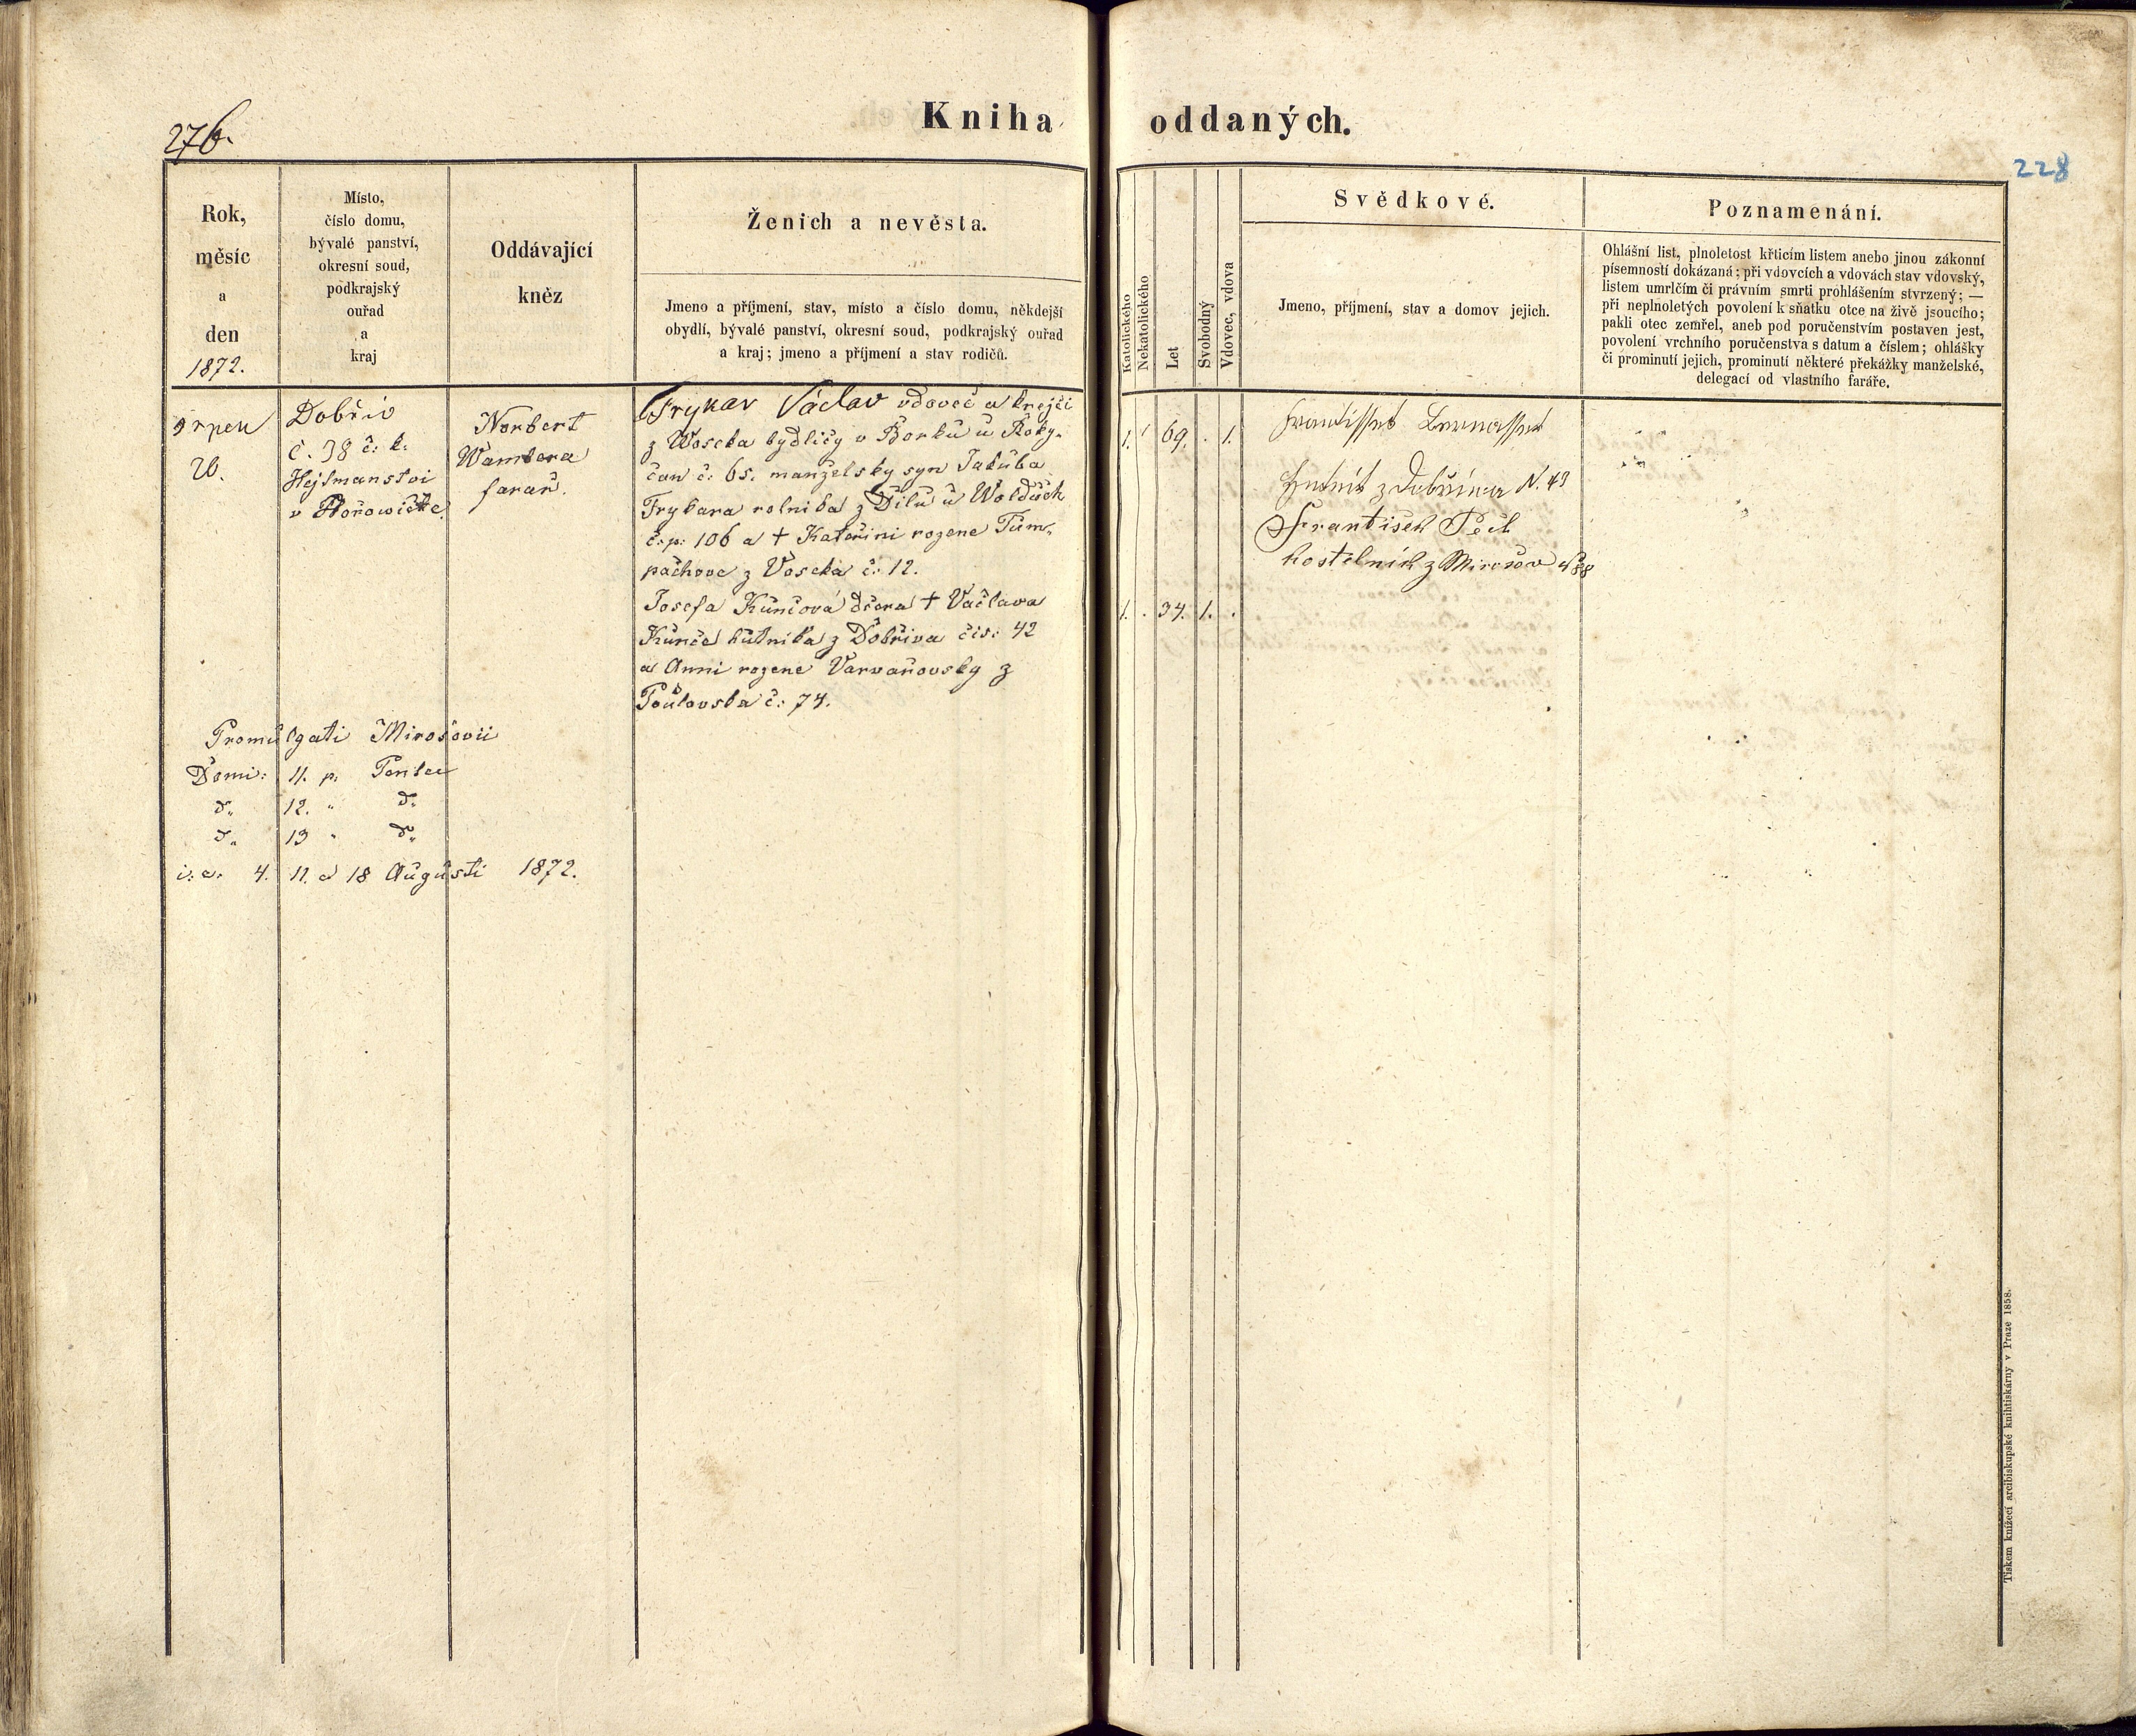 276.
Kniha oddaných.
228
Rok,
měsíc
a
den
1872.
Místo,
číslo domu,
bývalé panství,
okresní soud,
podkrajský
ouřad
a
kraj
Oddávající
kněz
Ženich a nevěsta.
Jmeno a příjmení, stav, místo a číslo domu, někdejší
obydlí, bývalé panství, okresní soud, podkrajský ouřad
a kraj; jmeno a příjmení a stav rodičů.
Katolického
Nekatolického
Let
Svobodný
Vdovec, vdova
Svědkové.
Jmeno, příjmení, stav a domov jejich.
Poznamenání.
Ohlášní list, plnoletost křticím listem anebo jinou zákonní
písemností dokázaná; při vdovcích a vdovách stav vdovský,
listem umrlčím či právním smrti prohlášením stvrzený; —
při neplnoletých povolení k sňatku otce na živě jsoucího;
pakli otec zemřel, aneb pod poručenstvím postaven jest,
povolení vrchního poručenstva s datum a číslem; ohlášky
či prominutí jejich, prominutí některé překážky manželské,
delegací od vlastního faráře.
srpen
Dobřiv
č. 38 č: k.
Hejtmanství
v Hořowičke
Norbert
Wambera
farař.
Frykar Václav vdovec a krejči
z Woseka bydlicy v Borku u Roky-
čan č: 65. manželsky syn Jakuba
Frykara rolnika z Dilu u Wolduch
č:p: 106 a † Kateřini rozene Tum-
pachove z Voseka č: 12.
Josefa Kunčová dcera † Vaclava
Kunce hutnika z Dobřiva čis: 42
a Anni rozene Varvařovsky z
č: 74.
1. 69. . 1.
1. . 34. 1. .
z Dobříva N. 49
František Peil
kostelník z Mirošov
Promulgati Mirošovii
Domi: 11. p. Pentec
d„ 12. „ d„
d„ 13 „ d„
i: e. 4. 11. et 18 Augusti 1872.
Tiskem knížecí arcibiskupské knihtiskárny v Praze 1858.